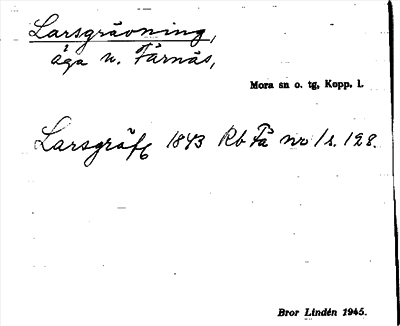 Larsgrävning,
äga n. Färnäs,
Mora sn o. tg, Kopp. l.
Larsgräf 1843 Rb Fä nr 1 s. 128.
Bror Lindén 1945.